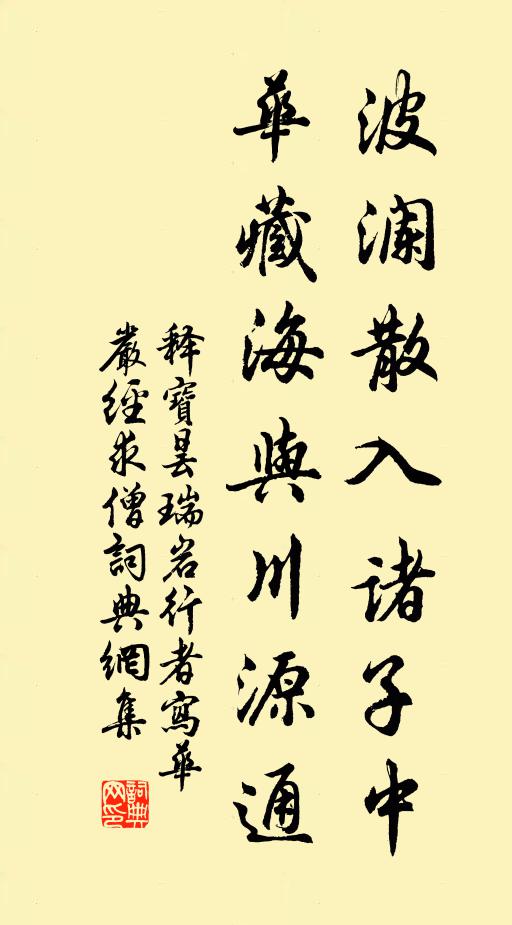 波澜散入诸子中
華藏海與川源通
释寶曇瑞岩行者寫華
嚴經求僧詞典網集
詞典
网印